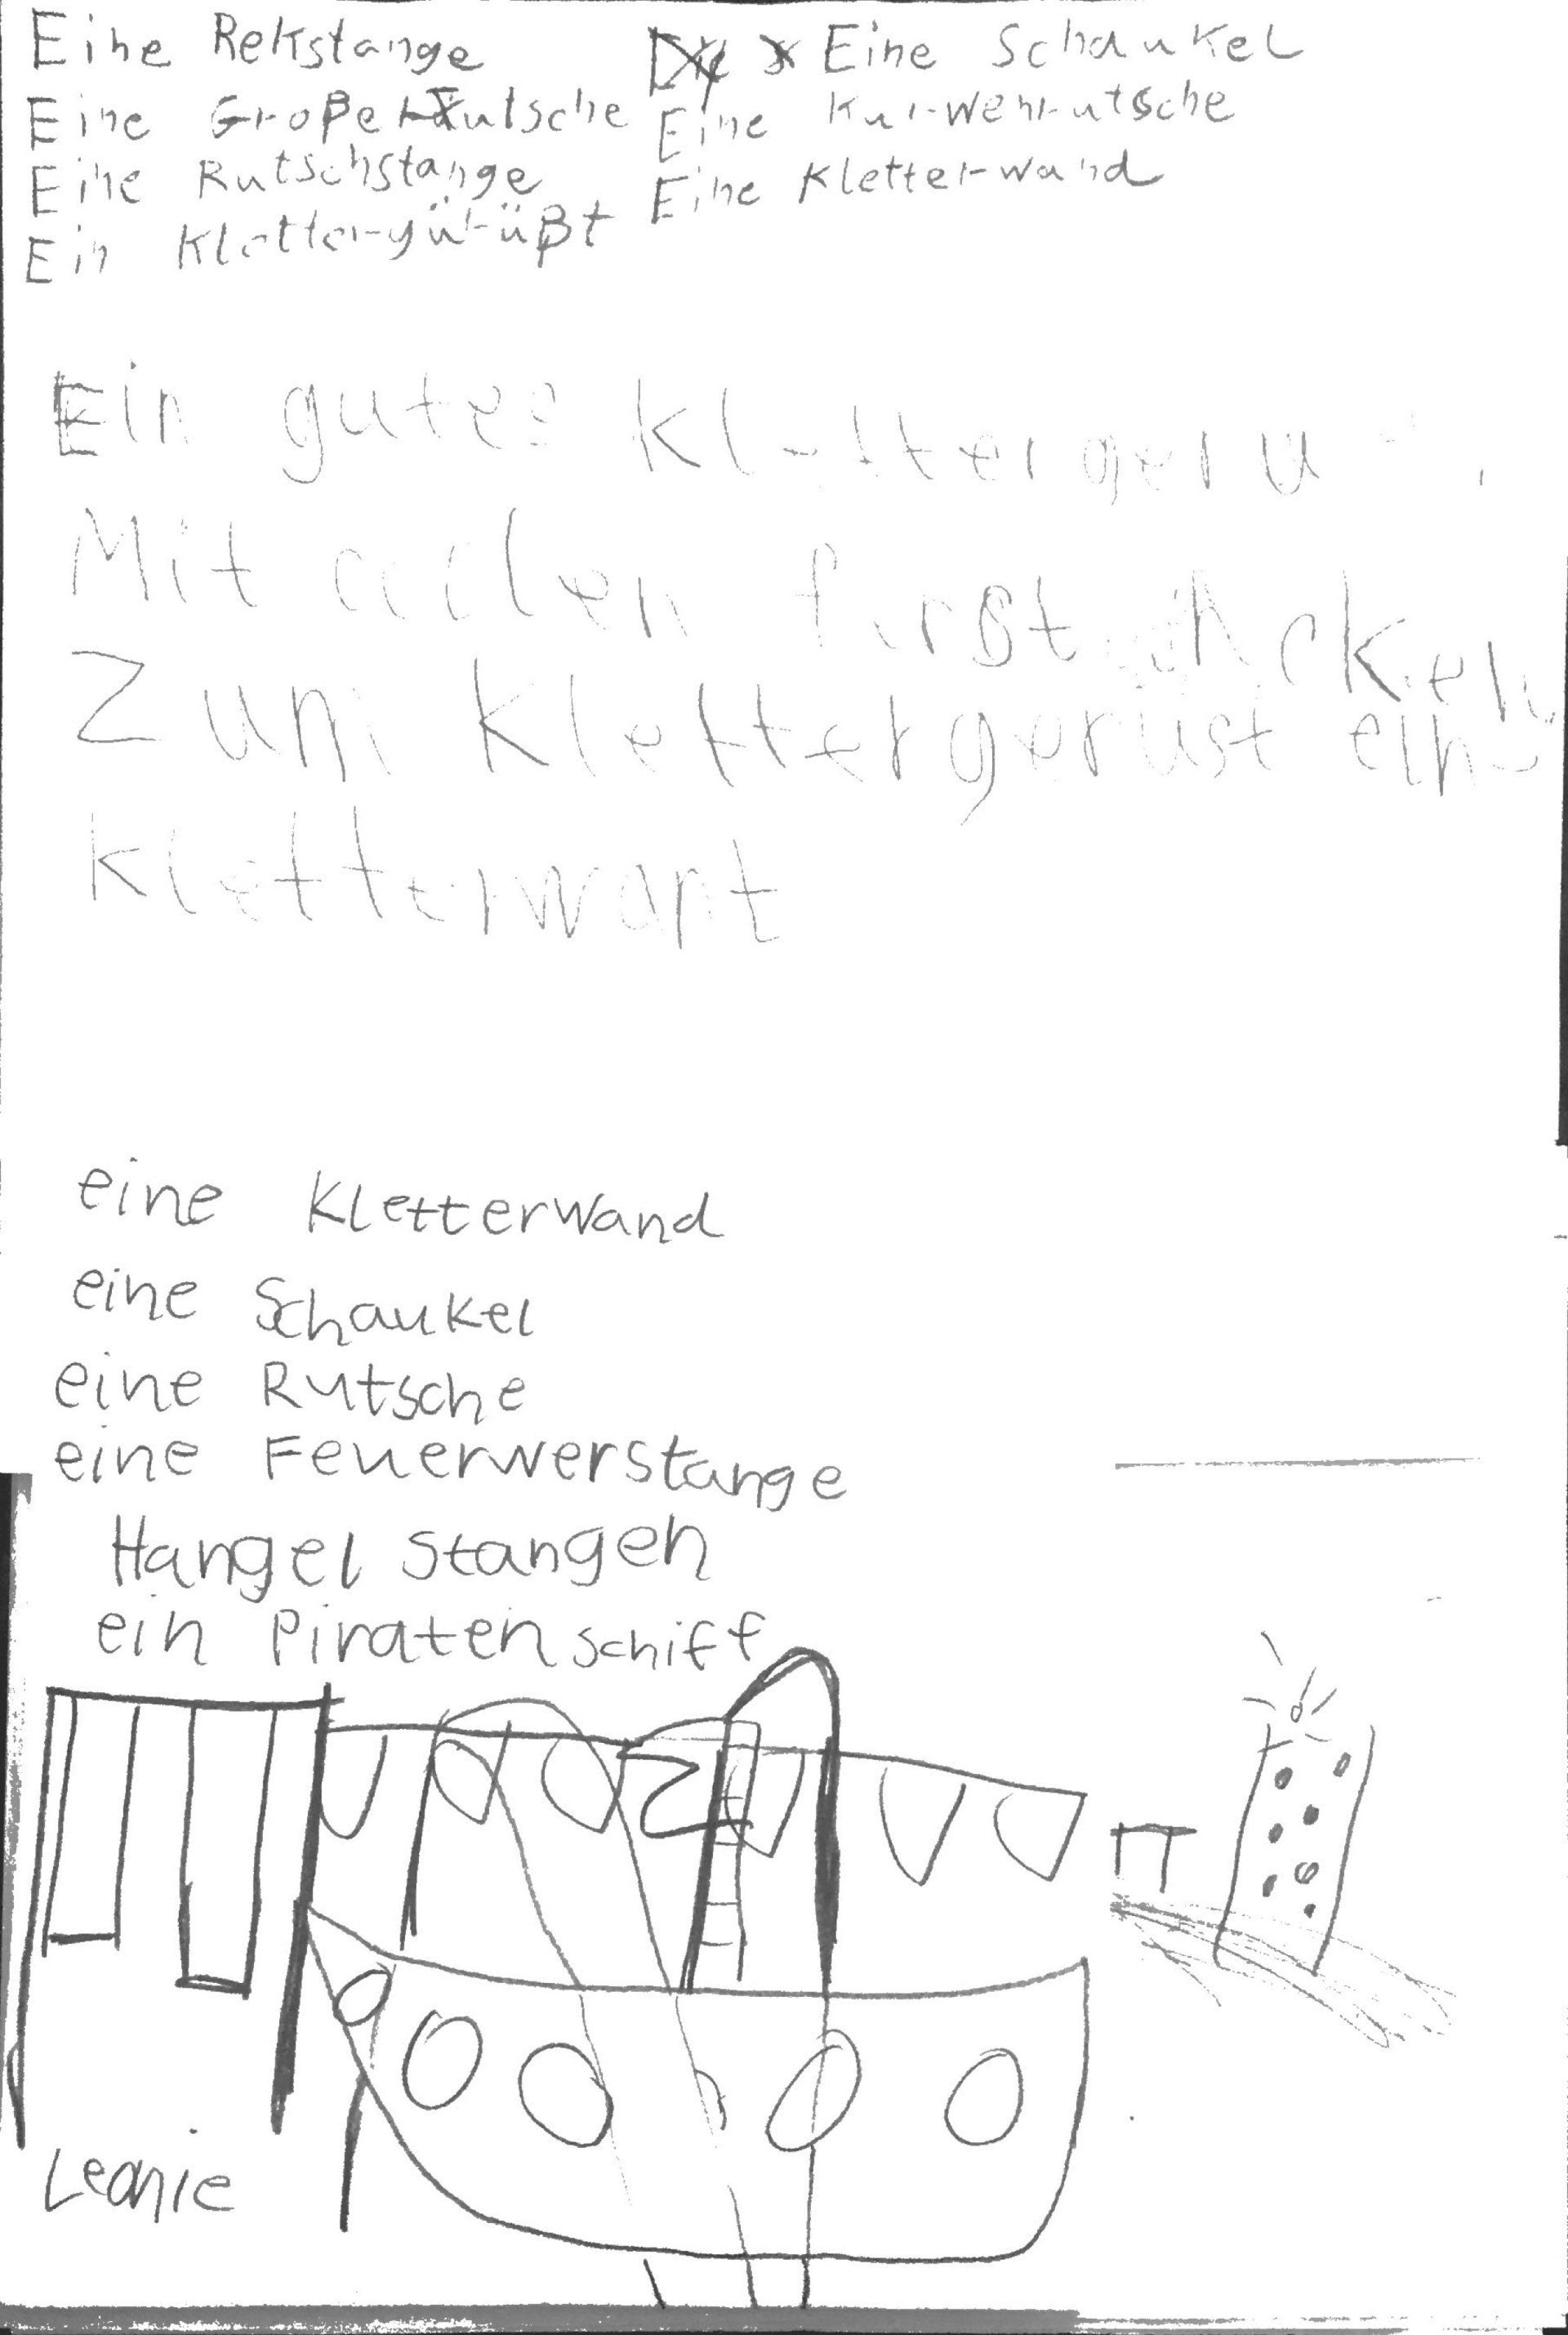 Eine Rekstange
Eine Große Rutsche
Eine Rutschstange
Ein Klettergürüßt
Eine Schaukel
Eine Kurwenrutsche
Eine Kletterwand
Ein gutes
Mit allen
Zum Klettergerüst eine
Kletterwant
eine Kletterwand
eine Schaukel
eine Rutsche
eine Feuerwerstange
Hangel stangen
ein Piratenschiff
Leonie